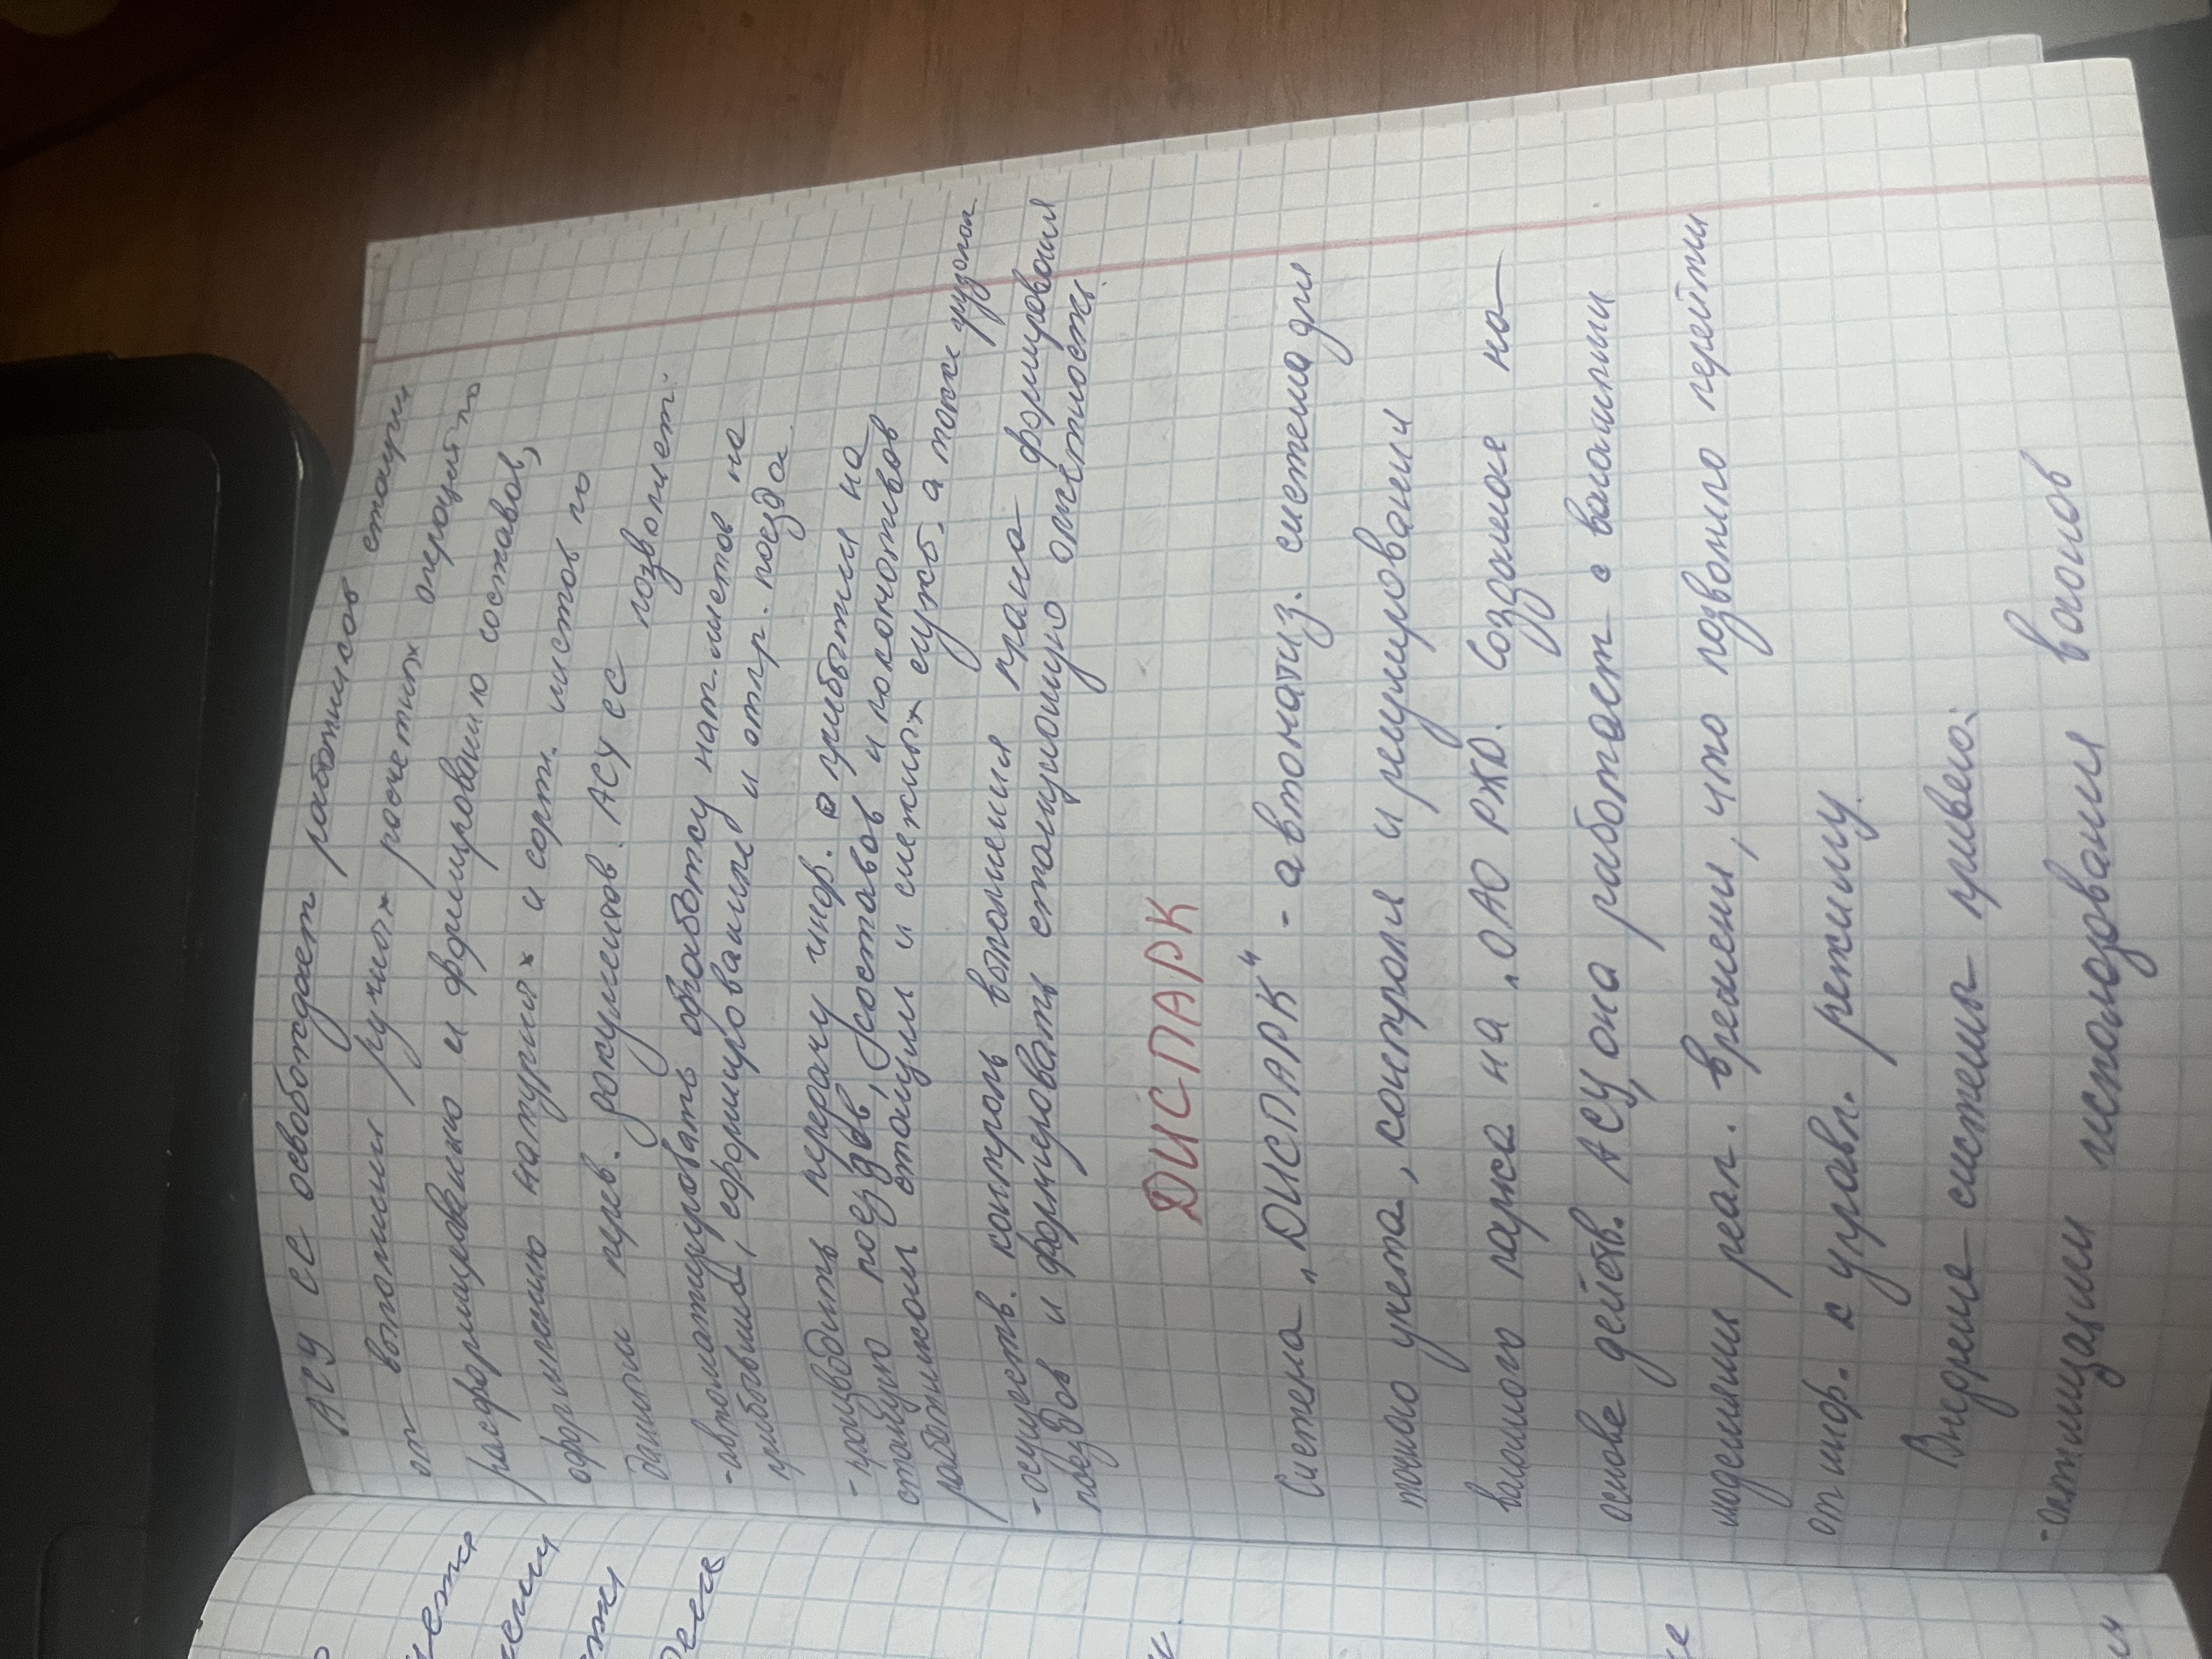 АСУ СС освобождает работников станции
от выполнения ручных расчетных операций по
расформированию и формированию составов,
оформлению натурных и сорт. листов по
данным перев. документов. АСУ СС позволяет:
-автоматизировать обработку нат. листов на
прибывшие, сформирование и отпр. поезда.
-производить передачу инф. о прибытии на
станцию поездов, составов и локомотивов
работникам станции и смежных служб, а также грузопол.
-осуществ. контроль выполнения плана формирования
поездов и формировать станционную отчетность.
ДИСПАРК
Система „ДИСПАРК" - автоматиз. система для
точного учета, контроля и регулирования
вагонного парка на „ОАО РЖД. Созданное на
основе действ. АСУ, она работает с вагонными
моделями реал. времени, что позволило перейти
от инф. к управл. режиму.
Внедрение системы привело:
-оптимизации использования вагонов